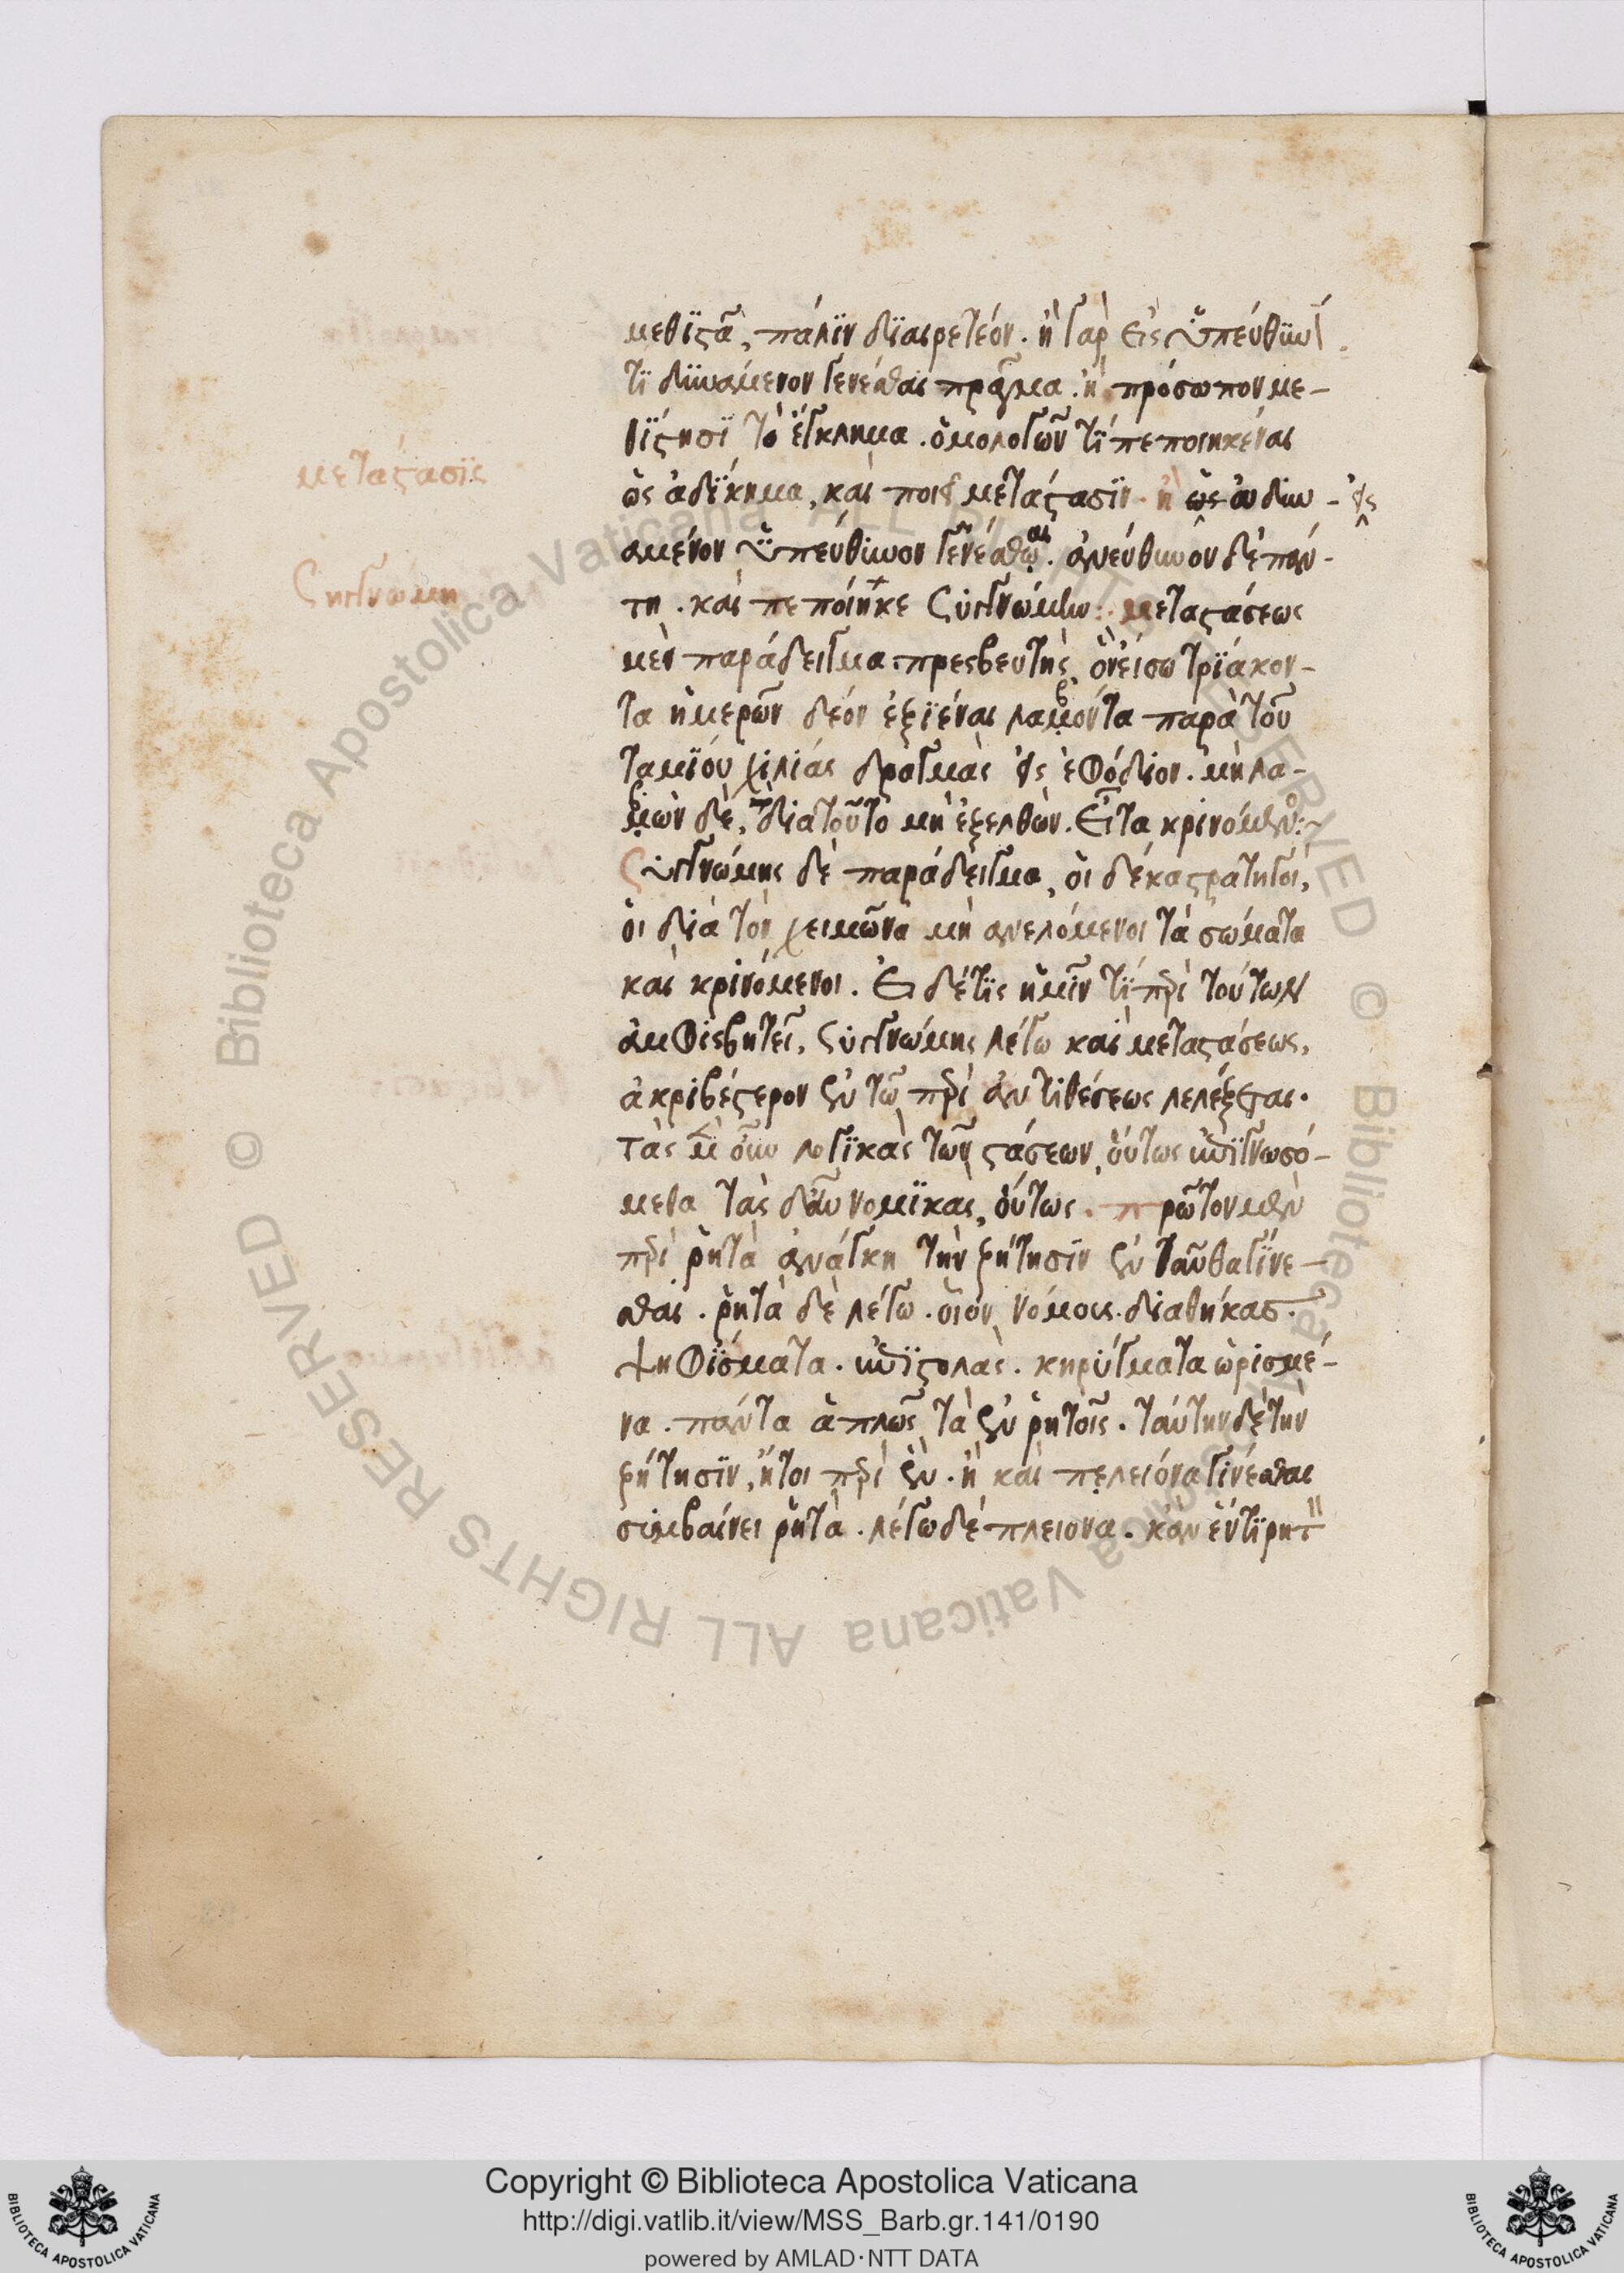 μεθιστᾶ, πάλϊν δϊαιρετέον. ἢ γὰρ εἰς ὑπεύθυνόν
τϊ δυνάμενον γενέσθαι πρᾶγμα. ἢ πρόσωπον με-
θίστησϊ τὸ ἔγκλημα. ὁμολογῶν τϊ πεποιηκέναι
ὡς ἀδίκημα, καὶ ποιεῖ μετάστασϊν. ἢ ὡς οὐ δυν- εἰς
αμένον ὑπεύθυνον γενέσθαι. ἀνεύθυνον δὲ πάν-
τη. καὶ πεποίηκε συγγνώμην: μεταστάσεως
μὲν παράδειγμα. πρεσβευτὴς, ὃν εἴσω τρϊάκον-
τα ἡμερῶν δέον ἐξϊέναι λαβόντα παρὰ τοῦ
ταμϊου χιλίας δραγμὰς εἰς ἐφόδιον. μὴ λα-
βὼν δὲ, διατοῦτο μὴ ἐξελθὼν. εἶτα κρινόμενος:~
συγγνώμης δὲ παράδειγμα, οἱ δέκα στρατηγοὶ,
οἱ διὰ τὸν χειμῶνα μὴ ἀνελόμενοι τὰ σώματα
καὶ κρινόμενοι. εἰ δέ τϊς ἡμῖν τϊ περὶ τούτων
ἀμφισβητεῖ, συγγνώμης λέγω καὶ μεταστάσεως,
ἀκριβέστερον ἐν τῶ περὶ ἀντιθέσεως λελέξεται.
τὰς μὲν οὖν λογϊκὰς τῶν στάσεων, οὕτως ἐπϊγνωσό-
μεθα τὰς δὲ αὖ νομϊκας, οὕτως. πρῶτον μὲν
περὶ ῥητὰ ἀνάγκη τὴν ζήτησϊν ἐνταῦθα γίνε-
σθαι. ῥητὰ δὲ λέγω. οἷον νόμους. διαθήκας.
ψηφϊσματα. ἐπϊστολὰς. κηρύγματα ὡρισμέ-
να. πάντα ἁπλῶς τὰ ἐν ῥητοῖς. ταύτην δὲ τὴν
ζήτησϊν, ἤτοι περὶ ἓν. ἢ καὶ πελειόνα γίνεσθαι
συμβαίνει ῥητὰ. λέγω δὲ πλειονα. κἂν ἕν τϊ ρητ
μετάστασϊς
συγγνωμη
Copyright © Biblioteca Apostolica Vaticana
http://digi.vatlib.it/view/MSS_Barb.gr.141/0190
powered by AMLAD·NTT DATA
© Biblioteca Apostolica Vaticana ALL RIGHTS RESERVED © Biblioteca Apostolica Vaticana ALL RIGHTS RESERVED
BIBLIOTECA APOSTOLICA VATICANA
BIBLIOTECA APOSTOLICA VATICANA